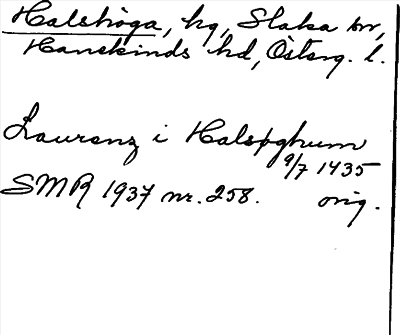 Halshöga, hg, Slaka sn,
Hanekinds hd, Österg. l.
Laurenz i Halsøghum
9/7 1435
SMR 1937 nr. 258. orig.